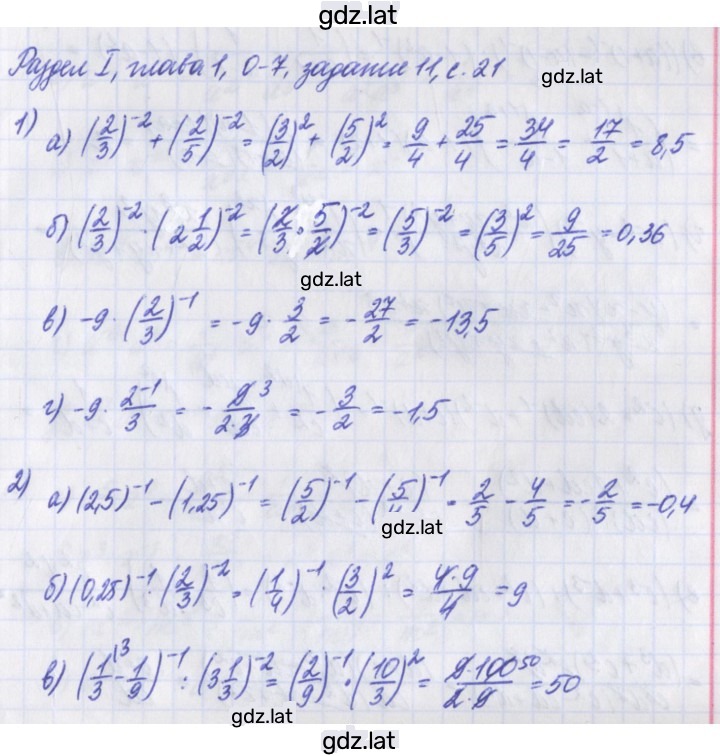 gdz.lat
Раздел I, глава 1, О-7, задание 11, с. 21
gdz.lat
1) а) (2/3)^-2 + (2/5)^-2 = (3/2)^2 + (5/2)^2 = 9/4 + 25/4 = 34/4 = 17/2 = 8,5
б) (2/3)^-2 · (2 1/2)^-2 = (2/3 · 5/2)^-2 = (5/3)^-2 = (3/5)^2 = 9/25 = 0,36
gdz.lat
в) -9 · (2/3)^-1 = -9 · 3/2 = -27/2 = -13,5
г) -9 · 2^-1/3 = - 9^3/2·3 = -3/2 = -1,5
2) а) (2,5)^-1 - (1,25)^-1 = (5/2)^-1 - (5/4)^-1 = 2/5 - 4/5 = -2/5 = -0,4
gdz.lat
б) (0,25)^-1 · (2/3)^-2 = (1/4)^-1 (3/2)^2 = 4·9/4 = 9
в) (1/3^(3 - 1/9)^-1 : (3 1/3)^-2 = (2/9)^-1 · (10/3)^2 = 9·100^50/2·9 = 50
gdz.lat
gdz.lat